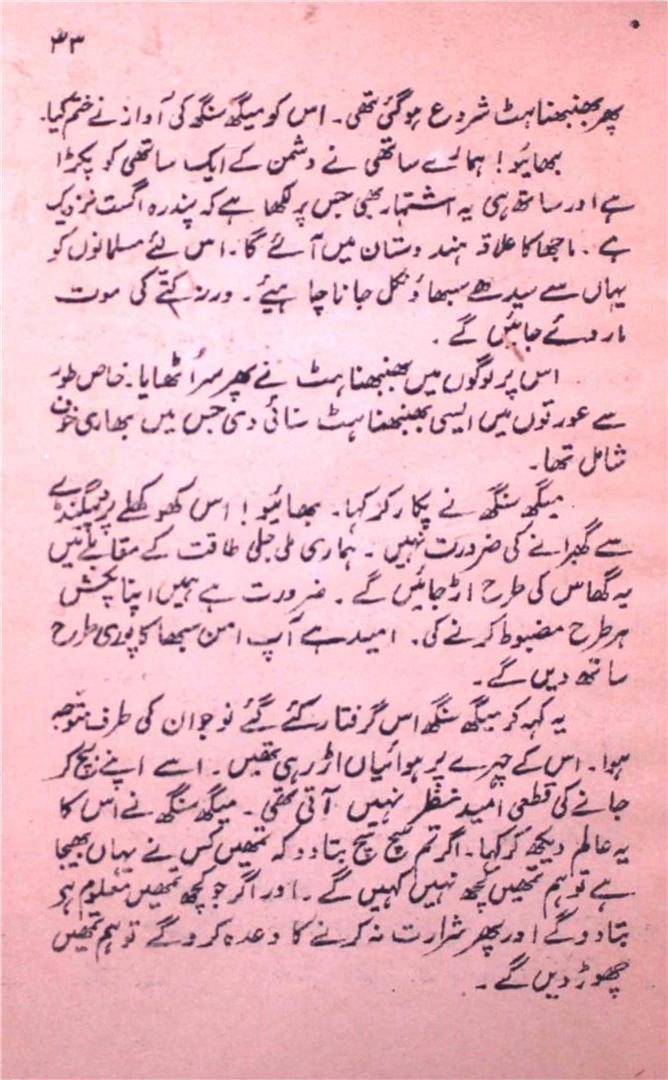 ۴۳
پھر بھنبھناہٹ شروع ہوگئی تھی۔ اس کو میگھ سنگھ کی آواز نے ختم کیا۔
بھائیو! ہمارے ساتھی نے دشمن کے ایک ساتھی کو پکڑا
ہے اور ساتھ ہی یہ اشتہار بھی جس پر لکھا ہے کہ پندرہ اگست نزدیک
ہے۔ ماجھا کا علاقہ ہندوستان میں آئے گا۔ اس لئے مسلمانوں کو
یہاں سے سیدھے سبھاؤ نکل جانا چاہیئے۔ ورنہ کتّے کی موت
مار دئے جائیں گے۔
اس پر لوگوں میں بھنبھناہٹ نے پھر سر اُٹھایا۔ خاص طور
سے عورتوں میں ایسی بھنبھناہٹ سنائی دی جس میں بھاری خوف
شامل تھا۔
میگھ سنگھ نے پکار کر کہا۔ بھائیو! اس کھوکھلے پروپگنڈے
سے گھبرانے کی ضرورت نہیں۔ ہماری ملی جلی طاقت کے مقابلے میں
یہ گھاس کی طرح اڑ جائیں گے۔ ضرورت ہے ہمیں اپنا پکش
ہر طرح مضبوط کرنے کی۔ امید ہے آپ امن سبھا کا پوری طرح
ساتھ دیں گے۔
یہ کہہ کر میگھ سنگھ اس گرفتار کئے گئے نوجوان کی طرف متوجہ
ہوا۔ اس کے چہرے پر ہوائیاں اڑ رہی تھیں۔ اسے اپنے بچ کر
جانے کی قطعی اُمید نظر نہیں آتی تھی۔ میگھ سنگھ نے اس کا
یہ عالم دیکھ کر کہا۔ اگر تم سچ سچ بتا دو کہ تمھیں کس نے یہاں بھیجا
ہے تو ہم تمھیں کچھ نہیں کہیں گے۔ اور اگر جو کچھ تمھیں معلوم ہو
بتا دو گے اور پھر شرارت نہ کرنے کا وعدہ کرو گے تو ہم تمھیں
چھوڑ دیں گے۔